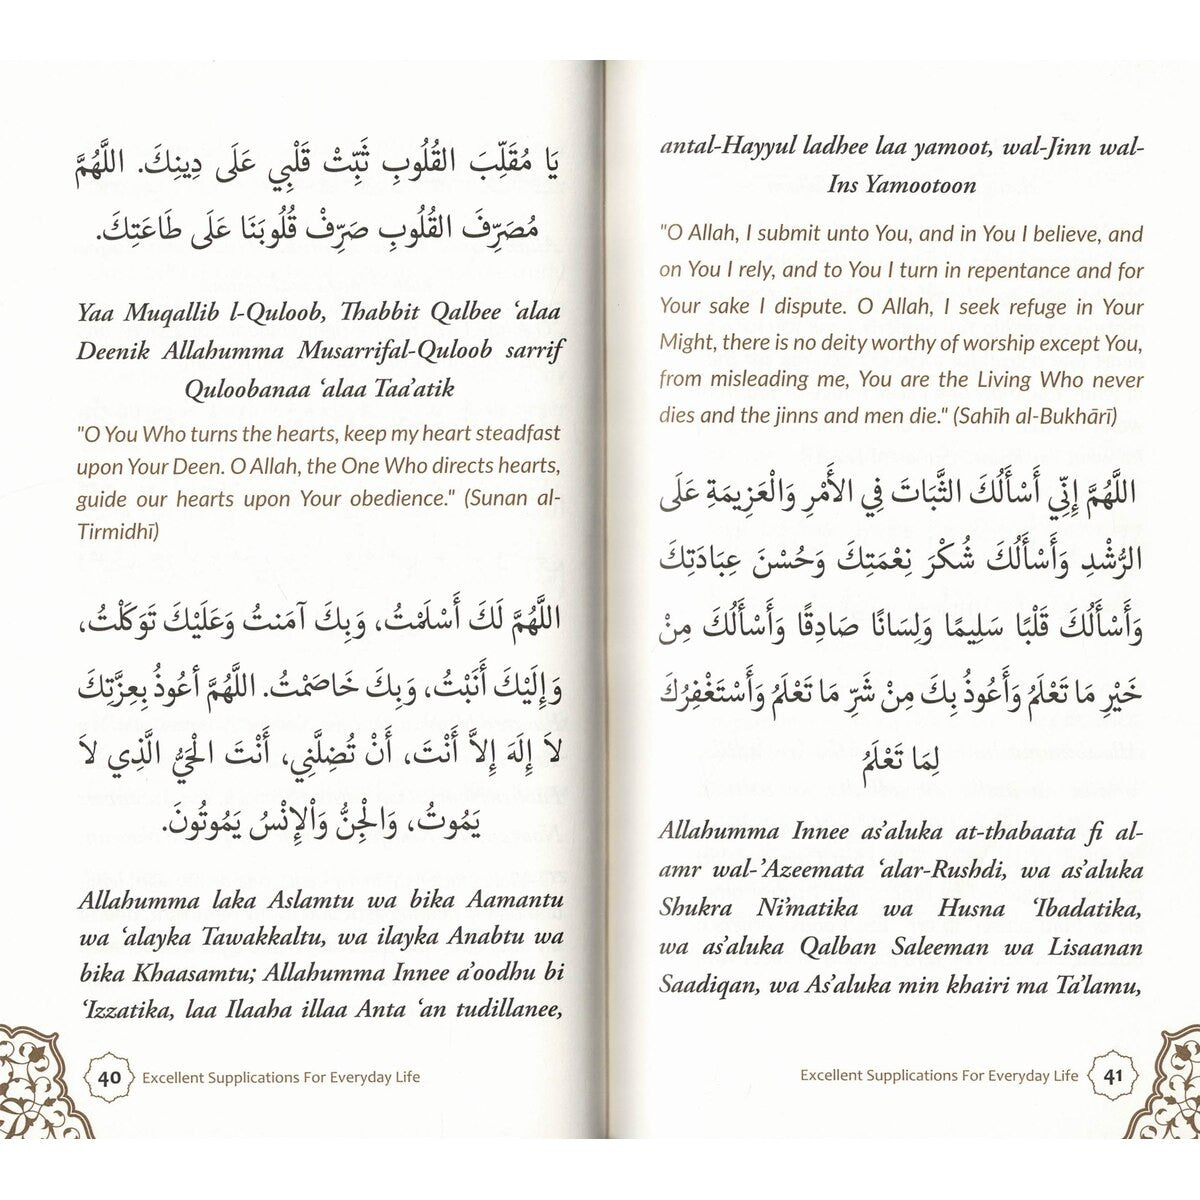 يَا مُقَلِّبَ القُلُوبِ ثَبِّتْ قَلْبِي عَلَى دِينِكَ. اللَّهُمَّ
مُصَرِّفَ القُلُوبِ صَرِّفْ قُلُوبَنَا عَلَى طَاعَتِكَ.
Yaa Muqallib l-Quloob, Thabbit Qalbee ‘alaa
Deenik Allahumma Musarrifal-Quloob sarrif
Quloobanaa ‘alaa Taa’atik
"O You Who turns the hearts, keep my heart steadfast
upon Your Deen. O Allah, the One Who directs hearts,
guide our hearts upon Your obedience." (Sunan al-
Tirmidhī)
اللَّهُمَّ لَكَ أَسْلَمْتُ، وَبِكَ آمَنتُ وَعَلَيْكَ تَوَكَلْتُ،
وَإِلَيْكَ أَنَبْتُ، وَبِكَ خَاصَمْتُ. اللَّهُمَّ أعُوذُ بِعِزَّتِكَ
لاَ إِلَهَ إِلاَّ أَنْتَ، أَنْ تُضِلَّنِي، أَنْتَ الْحَيُّ الَّذِي لاَ
يَمُوتُ، وَالْجِنُّ وَالْإِنْسُ يَمُوتُونَ.
Allahumma laka Aslamtu wa bika Aamantu
wa ‘alayka Tawakkaltu, wa ilayka Anabtu wa
bika Khaasamtu; Allahumma Innee a’oodhu bi
‘Izzatika, laa Ilaaha illaa Anta ‘an tudillanee,
40 Excellent Supplications For Everyday Life
antal-Hayyul ladhee laa yamoot, wal-Jinn wal-
Ins Yamootoon
"O Allah, I submit unto You, and in You I believe, and
on You I rely, and to You I turn in repentance and for
Your sake I dispute. O Allah, I seek refuge in Your
Might, there is no deity worthy of worship except You,
from misleading me, You are the Living Who never
dies and the jinns and men die." (Sahīh al-Bukhārī)
اللَّهُمَّ إِنِّي أَسْأَلُكَ الثَّبَاتَ فِي الأَمْرِ وَالْعَزِيمَةِ عَلَى
الرُّشْدِ وَأَسْأَلُكَ شُكْرَ نِعْمَتِكَ وَحُسْنَ عِبَادَتِكَ
وَأَسْأَلُكَ قَلْبًا سَلِيمًا وَلِسَانًا صَادِقًا وَأَسْأَلُكَ مِنْ
خَيْرِ مَا تَعْلَمُ وَأَعُوذُ بِكَ مِنْ شَرِّ مَا تَعْلَمُ وَأَسْتَغْفِرُكَ
لِمَا تَعْلَمُ
Allahumma Innee as’aluka at-thabaata fi al-
amr wal-’Azeemata ‘alar-Rushdi, wa as’aluka
Shukra Ni’matika wa Husna ‘Ibadatika,
wa as’aluka Qalban Saleeman wa Lisaanan
Saadiqan, wa As’aluka min khairi ma Ta’lamu,
Excellent Supplications For Everyday Life 41